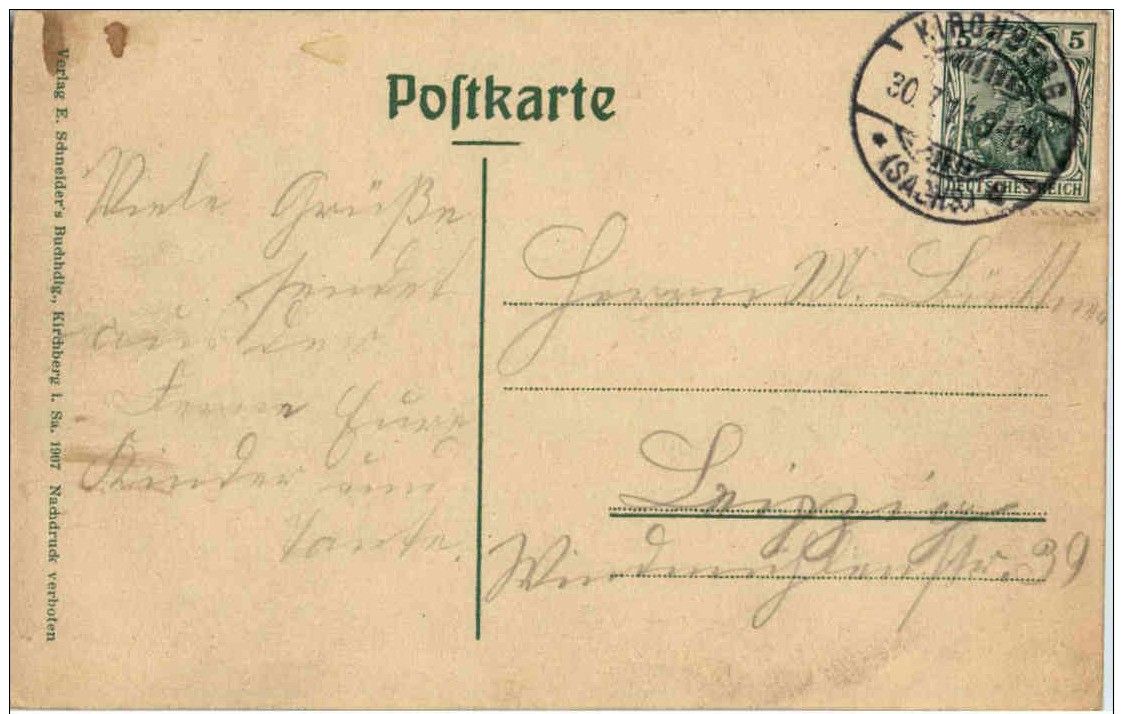 Verlag E. Schneider's Buchhdlg., Kirchberg i. Sa. 1907 Nachdruck verboten
Poſtkarte
KIRCHBERG
30.7.
(SACHS.)
5 5
DEUTSCHES REICH
Viele Grüße
sendet
aus der
Ferne Eure
Kinder
Tante.
Herrn M.
Leipzig
Windmühlenstr. 39